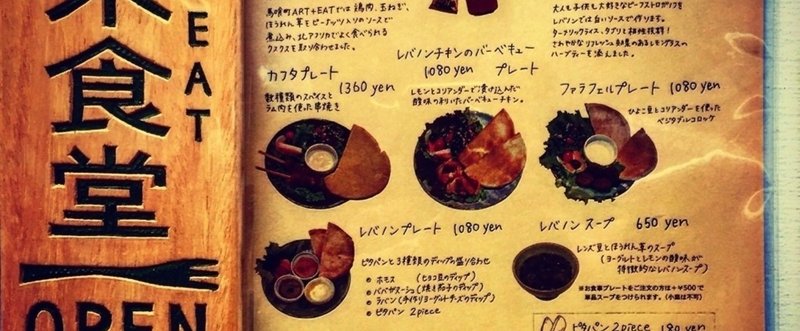 食堂
EAT
OPEN
馬喰町ART+EATでは鶏肉、玉ねぎ、
ほうれん草をピーナッツ入りのソースで
煮込み、北アフリカでよく食べられる
クスクスを取り合わせました。
大人も子供も大好きなビーフストロガノフを
レバノンでは白いソースで作ります。
ターメリックライス、タブリと相性抜群!
さわやかなリフレッシュ効果のあるレモングラスの
ハーブティーを添えました。
カフタプレート 1360 yen
数種類のスパイスと
ラム肉を使った串焼き
レバノンチキンのバーベキュー
1080 yen プレート
レモンとコリアンダーで漬け込んだ
酸味の利いたバーベキューチキン。
ファラフェルプレート 1080 yen
ひよこ豆とコリアンダーを使った
ベジタブルコロッケ
レバノンプレート 1080 yen
ピタパンと3種類のディップの盛り合わせ
ホモス (ヒヨコ豆のディップ)
ババガヌージュ (焼き茄子のディップ)
ラバン (手作りヨーグルトチーズのディップ)
ピタパン 2piece
レバノンスープ 650 yen
レンズ豆とほうれん草のスープ
(ヨーグルトとレモンの酸味が
特徴的なレバノンスープ)
※お食事プレートをご注文の方は+¥500で
単品スープをつけられます。(小皿は不可)
ピタパン 2piece 180 yen